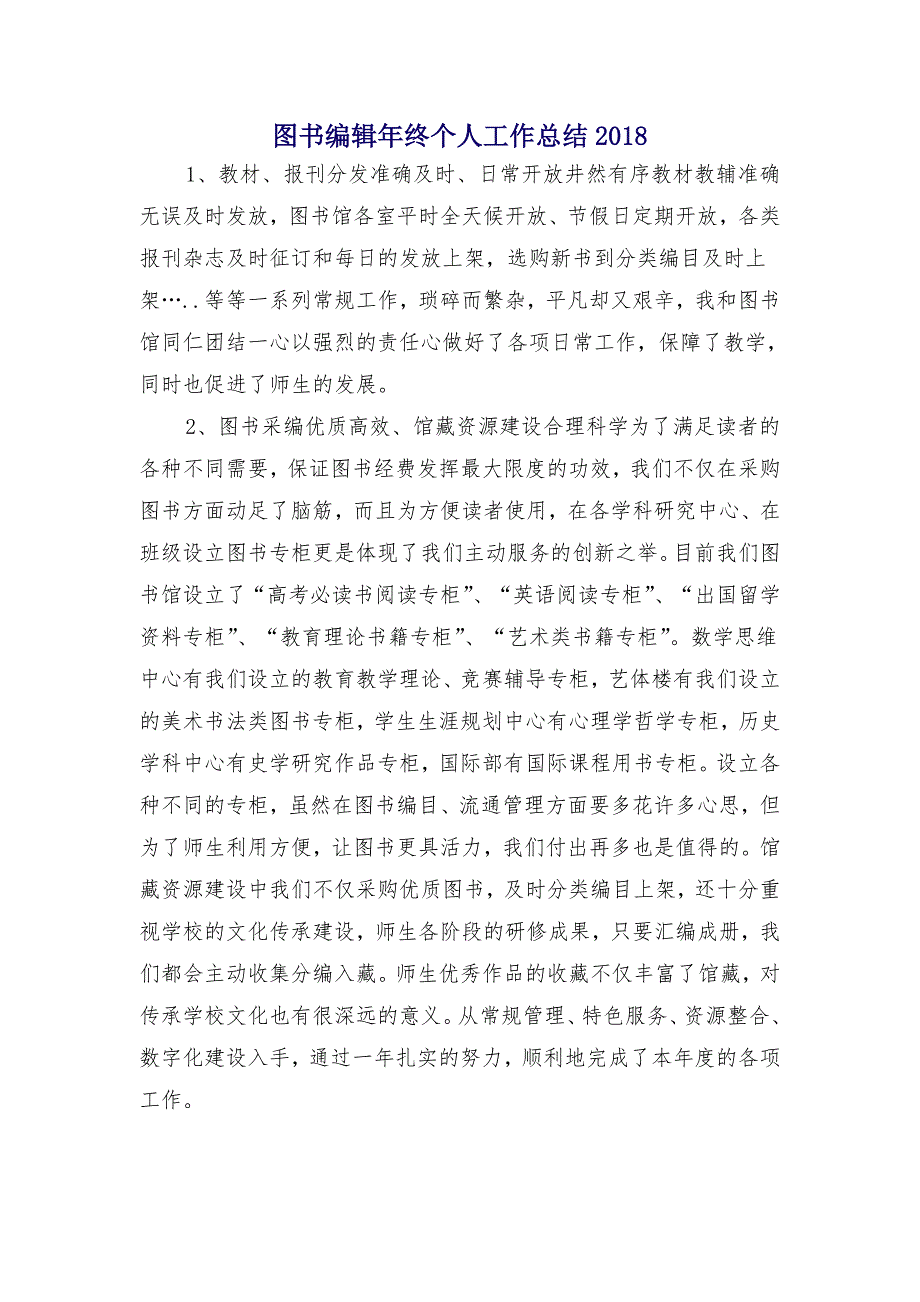 图书编辑年终个人工作总结2018
1、教材、报刊分发准确及时、日常开放井然有序教材教辅准确
无误及时发放，图书馆各室平时全天候开放、节假日定期开放，各类
报刊杂志及时征订和每日的发放上架，选购新书到分类编目及时上
架…..等等一系列常规工作，琐碎而繁杂，平凡却又艰辛，我和图书
馆同仁团结一心以强烈的责任心做好了各项日常工作，保障了教学，
同时也促进了师生的发展。
2、图书采编优质高效、馆藏资源建设合理科学为了满足读者的
各种不同需要，保证图书经费发挥最大限度的功效，我们不仅在采购
图书方面动足了脑筋，而且为方便读者使用，在各学科研究中心、在
班级设立图书专柜更是体现了我们主动服务的创新之举。目前我们图
书馆设立了“高考必读书阅读专柜”、“英语阅读专柜”、“出国留学
资料专柜”、“教育理论书籍专柜”、“艺术类书籍专柜”。数学思维
中心有我们设立的教育教学理论、竞赛辅导专柜，艺体楼有我们设立
的美术书法类图书专柜，学生生涯规划中心有心理学哲学专柜，历史
学科中心有史学研究作品专柜，国际部有国际课程用书专柜。设立各
种不同的专柜，虽然在图书编目、流通管理方面要多花许多心思，但
为了师生利用方便，让图书更具活力，我们付出再多也是值得的。馆
藏资源建设中我们不仅采购优质图书，及时分类编目上架，还十分重
视学校的文化传承建设，师生各阶段的研修成果，只要汇编成册，我
们都会主动收集分编入藏。师生优秀作品的收藏不仅丰富了馆藏，对
传承学校文化也有很深远的意义。从常规管理、特色服务、资源整合、
数字化建设入手，通过一年扎实的努力，顺利地完成了本年度的各项
工作。